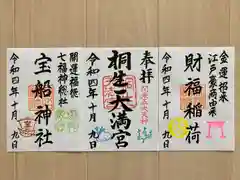 奉拝
桐生天満宮
令和四年十月九日
開運福授
七福神総社
宝船神社
令和四年十月九日
金運招来
財福稲荷
令和四年十月九日